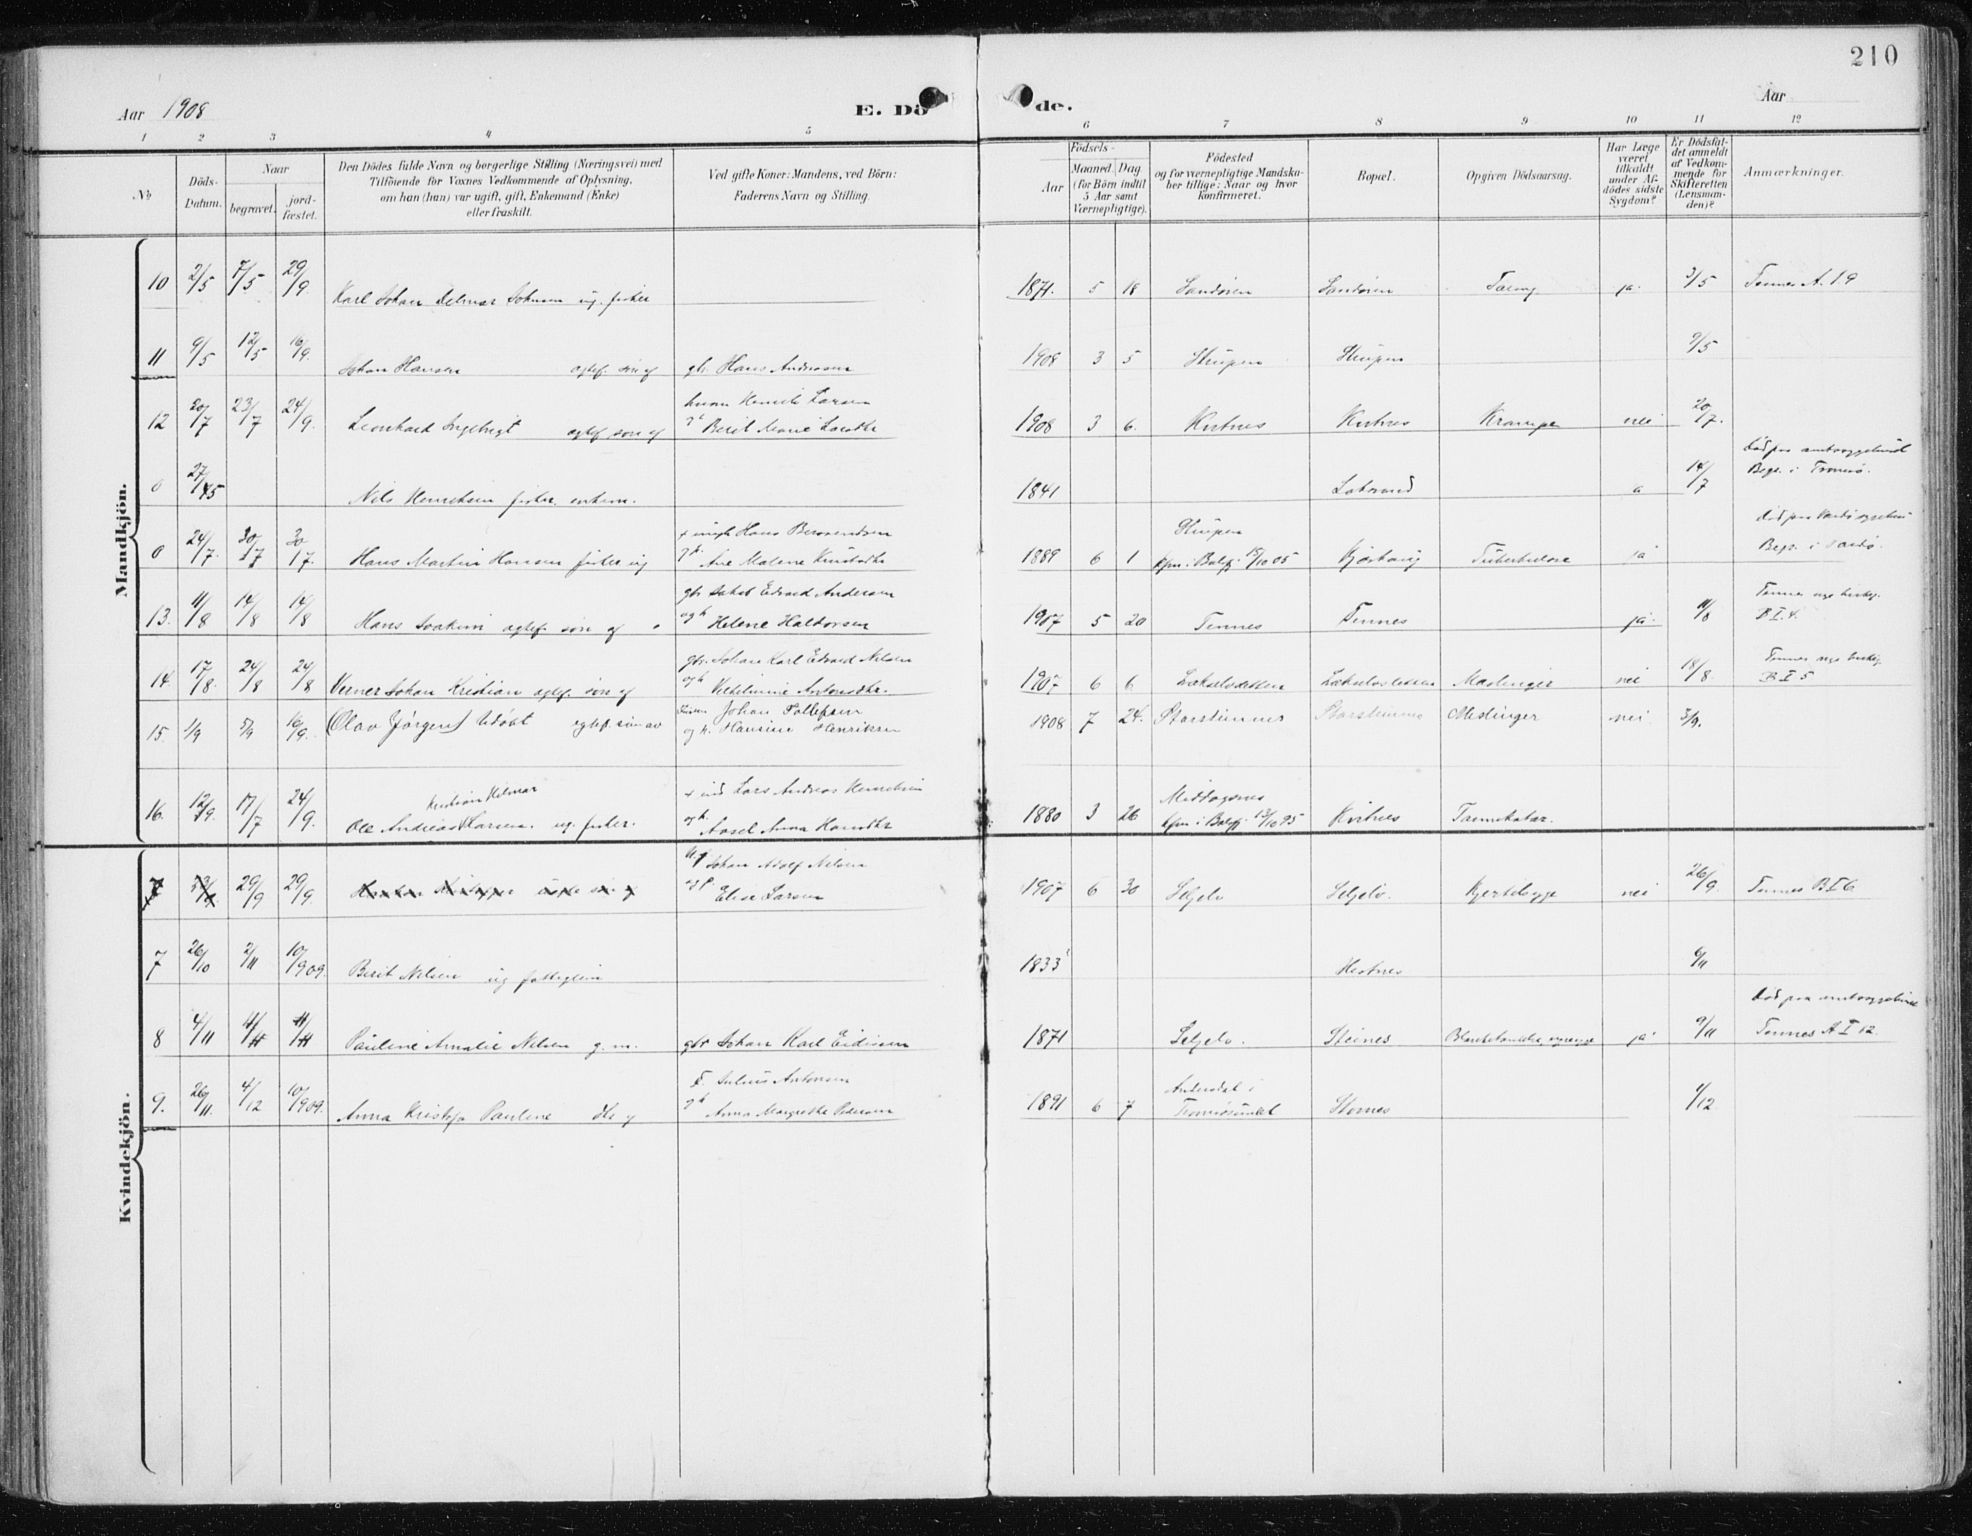 210
Aar 1908
E. Dö de.
Aar
1 2 3 4 5 6 7 8 9 10 11 12
No
Döds-Datum.
Naar
begravet.
jord-fæstet.
Den Dödes fulde Navn og borgerlige Stilling (Næringsvei) med
Tilföiende for Voxnes Vedkommende af Oplysning,
om han (hun) var ugift, gift, Enkemand (Enke)
eller fraskilt.
Ved gifte Koner: Mandens, ved Börn:
Faderens Navn og Stilling.
Födsels-
Aar
Maaned. Dag
(for Börn indtil
5 Aar samt
Værnepligtige).
Födested
og for værnepligtige Mandska-
ber tillige: Naar og hvor
konfirmeret.
Bopæl.
Opgiven Dödsaarsag.
Har Læge
været
tilkaldt
under Af-
dödes sidste
Sygdom?
Er Dödsfal-
det anmeldt
af Vedkom-
mende for
Skifteretten
(Lensman-
den)?
Anmærkninger.
Mandkjön.
10 2/5 7/5 29/9 Karl Johan Johnsen ug. fisker 1871. 5 18 Sandøren Sandøren Tæring ja 3/5 Tennes A. 19
11 9/5 12/5 16/9. Johan Hansen ægtef. søn af gbr. Hans Andreasen 1908 3 5 Strupen Strupen 9/5
12 20/7 23/7 24/9. Leonhard Ingebrigt ægtef. søn af Henrik Larsen
Berit Marie 1908 3 6. Kvitnes Kvitnes Krampe nei 20/7.
0 27/45 Nils Henriksen fisker enkem. 1841 14/7 Død paa amtssygehuset
Begr. i Tromsø.
0 24/7. 30/7 30/7. Hans Martin Hansen fisker ug Hans
Ane Malene 1889 6 1 Strupen
kfm. i Balsfj. 15/10 05 Tuberkulose ja Død paa Vardø sygehus
Begr. i Vardø.
13. 11/8 14/8 14/8 Hans Joakim ægtef. søn af gbr Jakob Edvard Andersen
og h Helene Haldorsen 1907 5 20 Tennes Tennes ja. 11/8 Tennes nye kirkeg.
B I. 4.
14. 17/8. 24/8 24/8 Verner Johan Kristian ægtef. søn af gbr. Johan Karl Edvard Nilsen
og h Vilhelmine Antonsdtr. 1907 6 6 Lakselvsletten Lakselvsletten Meslinger nei 18/8. Tennes nye kirkeg
B I 5
15. 1/9 5/9 16/9. Olav (Jørgen) udøbt egtef. søn av Johan Tollefsen
og h. Hansine Henriksen 1908 7 24. Storsteinnes Storsteinnes Meslinger nei 3/9.
16. 12/9. 17/7 24/9. Kristian Hilmar
Ole Andreas Larsen. ug. fisker. Lars Andreas Henriksen
og h. Anna Hansdtr 1880 3 26 Middagsnes
kfm i Balsfj. 13/10 95 Kvitnes Tarmkatar.
Kvindekjön.
7 23/9 29/9 29/9 Johan Adolf Nilsen
Elise Larsen 1907 6 30 Seljelv Seljelv. nei 26/9. Tennes B I 6
7 26/10 2/11 10/9 09. Berit Nilsen ug fattiglem 1833 Hestnes 6/11
8 4/11 11/11 11/11 Pauline Amalie Nilsen g. m. gbr Johan Karl 1871 Seljelv. Steines ja 9/11 Død paa amtssygehuset
Tennes A I 12.
9. 26/11. 4/12 10/9 09. Anna Kristofa Pauline dtr af Julius Antonsen
Anna Margrethe Pedersen 1891 6 7 Andersdal i
Tromsøsundet Stornes 1/12.